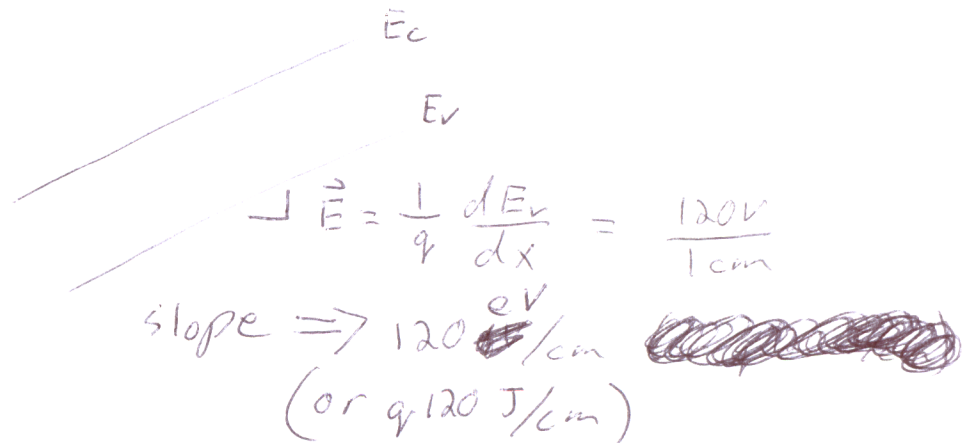 Ec
Ev
E⃗ = 1/q dEv/dx = 120V/1cm
slope => 120 eV/cm
(or q120 J/cm)